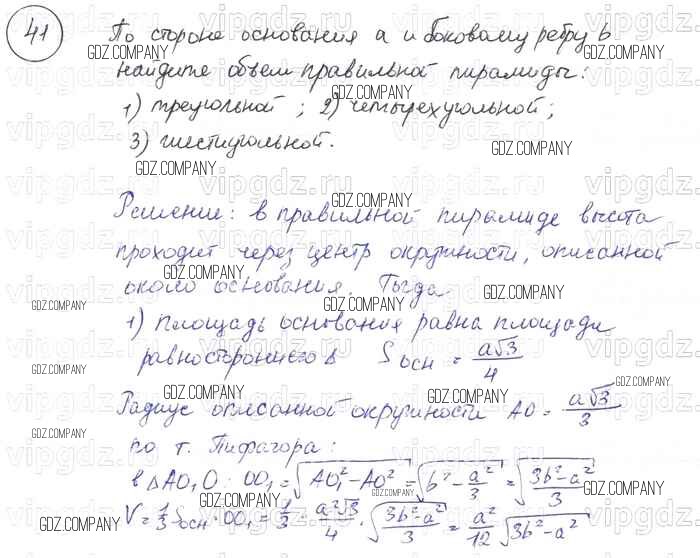 41
По стороне основания a и боковому ребру b
найдите объем правильной пирамиды:
1) треугольной; 2) четырехугольной;
3) шестиугольной.
Решение: в правильной пирамиде высота
проходит через центр окружности, описанной
около основания. Тогда
1) площадь основания равна площади
равностороннего Δ Sосн = a√3/4
Радиус описанной окружности AO = a√3/3
по т. Пифагора:
в ΔAO₁O: OO₁ = √(AO₁² - AO²) = √(b² - a²/3) = √((3b² - a²)/3)
V = 1/3 Sосн · OO₁ = 1/3 · a²√3/4 · √((3b² - a²)/3) = a²/12 √(3b² - a²)